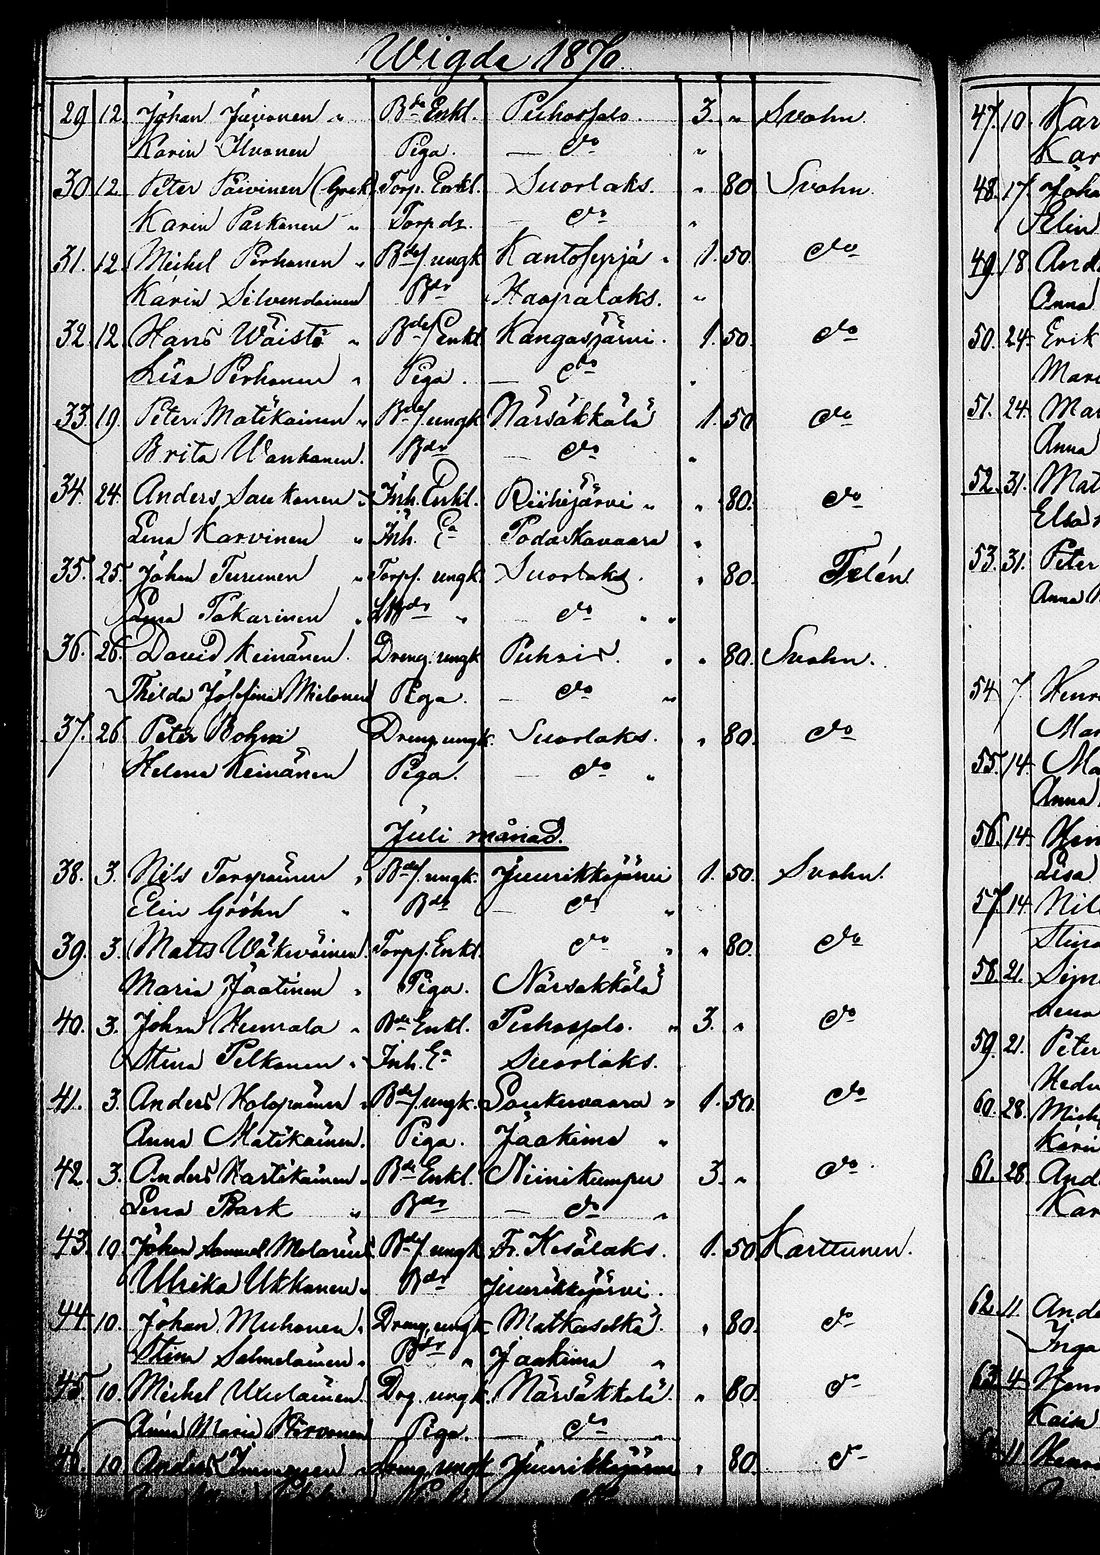 Wigde 1870.
29 12. Johan Juvonen " Bde Enkl. Puhossalo. 3. " Svahn.
Karin Ikonen Piga. — do "
30. 12. Peter Päivinen Torp. Enkl. Suorlaks. " 80 Svahn.
Karin Parkonen " Torp dr. — do "
31. 12. Michel Perhonen " Bdes. ungk Kantosyrjä " 1. 50. do
Karin Silvendoinen Bdr Haapalaks. "
32. 12. Hans Wäistö " Bdes Enkl Kangasjärvi. 1. 50. do
Lisa Perhonen " Piga. — do "
33. 19. Peter Matikainen " Bdes. ungk Närsäkkälä 1. 50 do
Brita Wanhanen. Bdr — do "
34. 24. Anders Saukonen " Inh. Enkl. Riihijärvi " " 80. do
Lena Karvinen " Inh. Ea Podaskavaara "
35. 25. Johan Turunen " Torps. ungk. Suorlaks. " 80.
Lena Tokarinen " " — do " "
36. 26. David Keinänen. Dreng. ungk Puhois. " " 80. Svahn.
Thilda Josefina Mielonen Piga. — do "
37. 26. Peter Bohm Dreng ungk. Suorlaks. " 80. do
Helena Keinänen Piga. — do "
Juli månad.
38. 3. Nils Torspoinen " Bdes. ungk. Juurikkajärvi 1. 50. Svahn.
Elin Gröhn " Bdr — do "
39. 3. Matts Wäkeväinen. Torps. Enkl. do " " 80. do
Maria Jaatinen " Piga. Närsäkkälä
40. 3. Johan Hunnala " Bde Enkl. Puhossalo. " 3. " do
Stina Pelkonen " Inh. Ea Suorlaks.
41. 3. Anders Holopainen " Bdes. ungk. Loukuvaara " 1. 50. do
Anna Matikainen. Piga. Jaakima "
42. 3. Anders Hartikainen " Bde Enkl. Niinikumpu 3. " do
Lena Bark " Bdr — do "
43. 10. Johan Samuel Molarius Bdes. ungk Fr. Kesälaks. 1. 50 Karttunen.
Ulrika Ukkonen " Bdr Juurikkajärvi.
44. 10. Johan Muhonen. Dreng. ungk Matkaselkä. " 80. do
Stina Salmelainen " Bdr " Jaakima "
45. 10. Michel Drg. ungk. Närsäkkälä " 80. do
Anna Maria Hirvonen Piga. — do "
46. 10. Anders Immonen " Dreng ungk Juurikkajärvi " 80. do
47. 10. Kar
Kar
48. 17. Joha
Elin
49. 18. And
Anna
50. 24. Erik
Mari
51. 24. Mar
Anna
52. 31. Mat
Elsa
53. 31. Peter
Anna
54. 7. Henr
Mar
55. 14. Ma
Anna
56. 14. Hen
Lisa
57. 14. Nil
Stina
58. 21. Sim
Lena
59. 21. Peter
Hedv
60. 28. Mich
Karin
61. 28. And
Kar
62. 11. And
Inga
63. 4. Henr
Kaisa
11. Henr